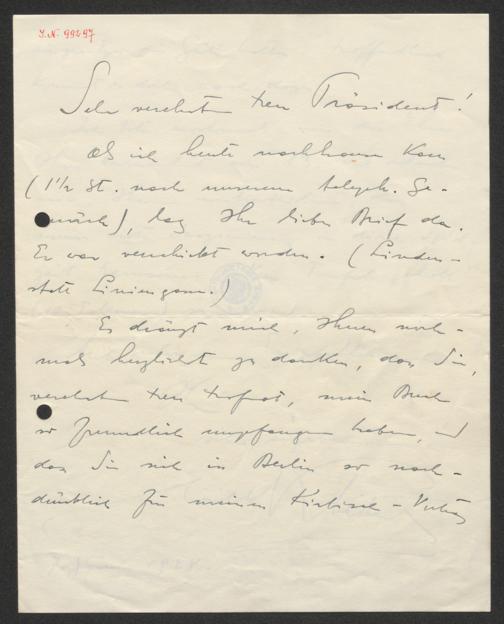 J.N. 99297
Sehr verehrter Herr Präsident!
Als ich heute nachhause kam
(1½ St. nach unserem teleph. Ge-
spräch), lag Ihr lieber Brief da.
Er war verschickt worden. (Linden-
statt Liniengasse.)
Es drängt mich, Ihnen noch-
mals herzlichst zu danken, dass Sie,
verehrter Herr Hofrat, mein Buch
so freundlich empfangen haben, und
dass Sie sich in Berlin so nach-
drücklich für meinen - Vertrag